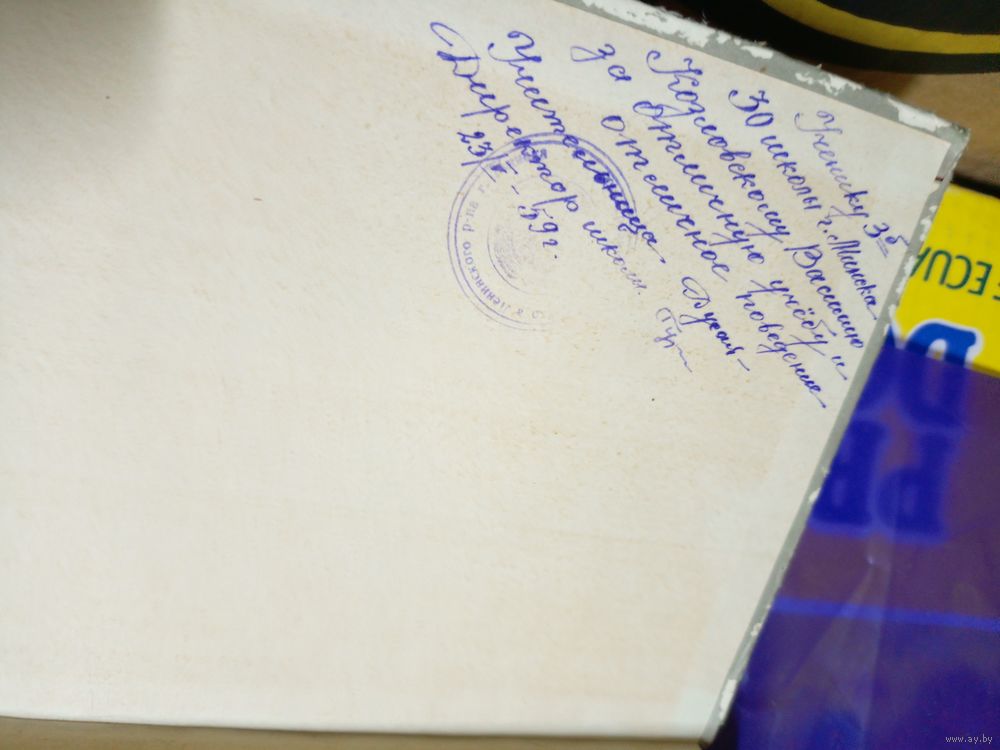 Ученику 3б
30 школы г. Минска
Козловскому Василию
за отличную учёбу и
отличное поведение
Учительница
Директор школы
23/V - 59 г.
Ленинского р-на г.
ECUA
www.ay.by